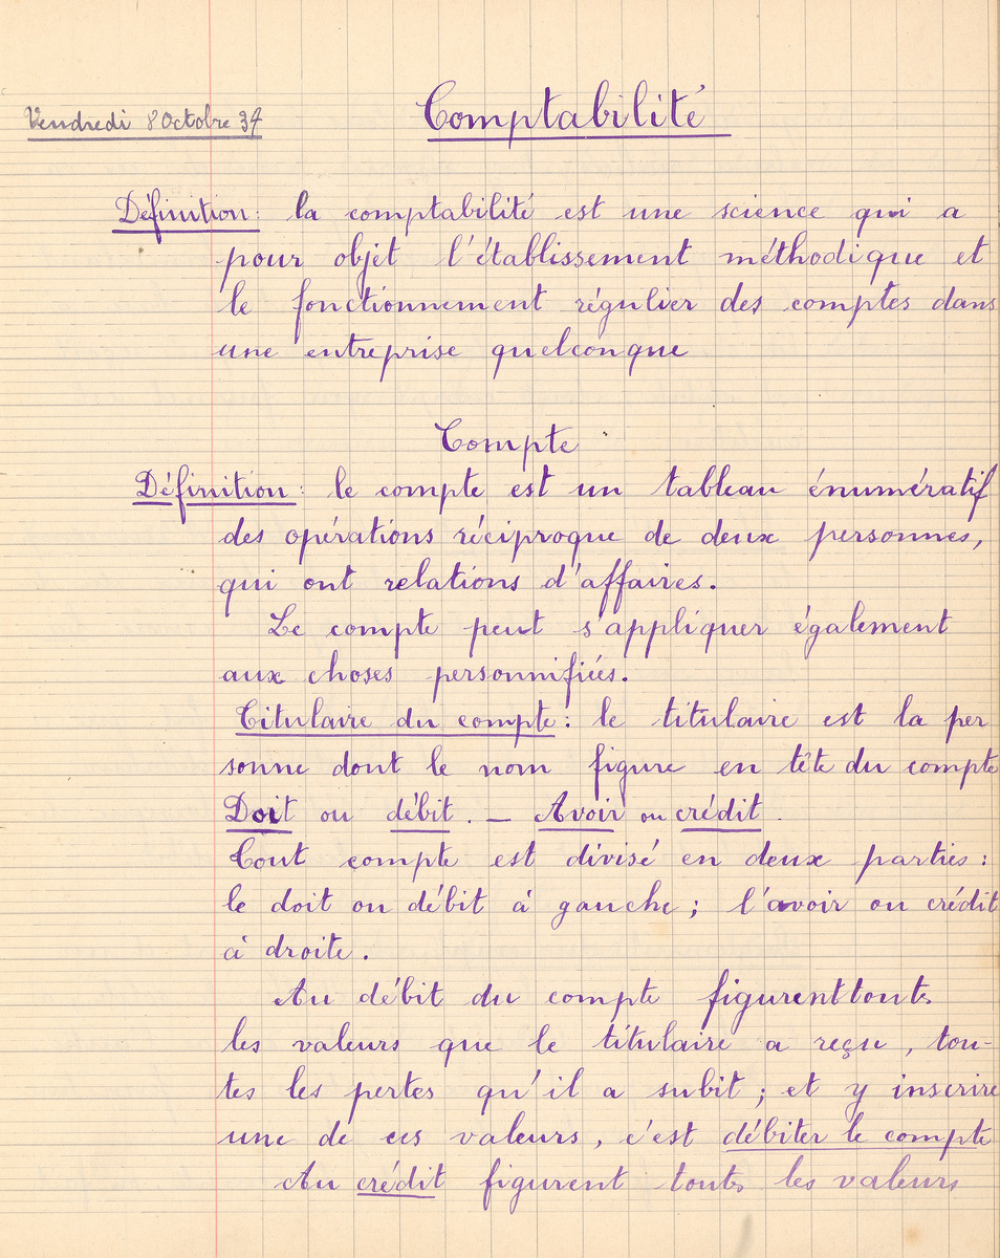 Vendredi 8 Octobre 37
Comptabilité
Définition : la comptabilité est une science qui a
pour objet l'établissement méthodique et
le fonctionnement régulier des comptes dans
une entreprise quelconque
Compte
Définition : le compte est un tableau énumératif
des opérations réciproque de deux personnes,
qui ont relations d'affaires.
Le compte peut s'appliquer également
aux choses personnifiées.
Titulaire du compte : le titulaire est la per
sonne dont le nom figure en tête du compte
Doit ou débit. — Avoir ou crédit.
Tout compte est divisé en deux parties :
le doit ou débit à gauche ; l'avoir ou crédit
à droite.
Au débit du compte figurent toutes
les valeurs que le titulaire a reçu, tou-
tes les pertes qu'il a subit ; et y inscrire
une de ces valeurs, c'est débiter le compte
Au crédit figurent toutes les valeurs